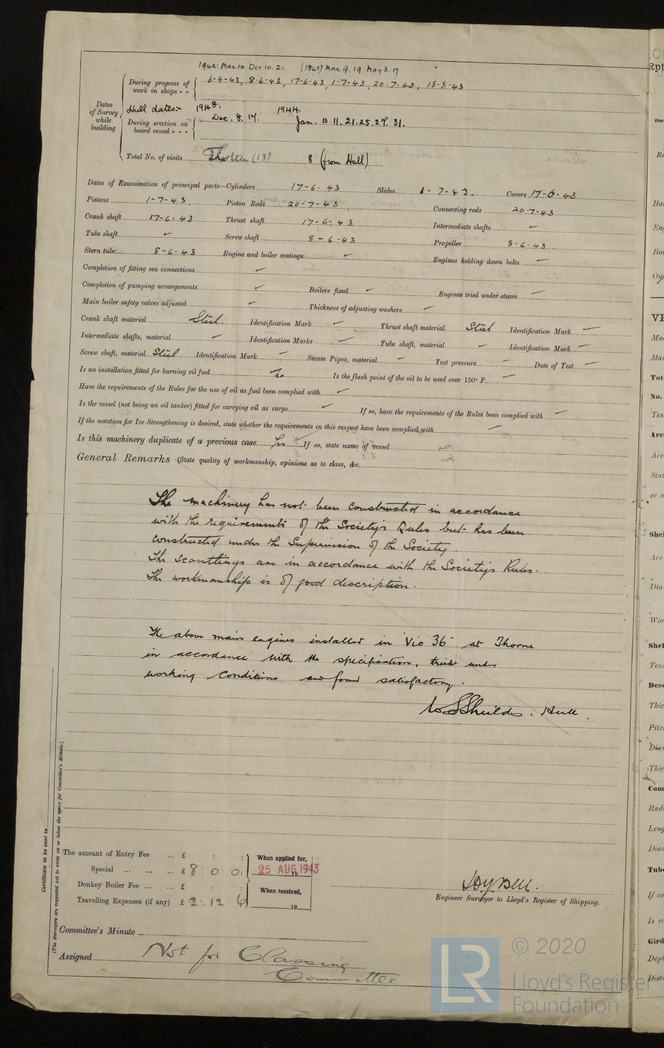 1942: Mar 10 Dec 10. 21. (1943) Mar 9. 19 May 3. 17
During progress of work in shops - - 6-4-43, 8-6-43, 17-6-43, 1-7-43, 20-7-43, 18-8-43
Dates of Survey while building
Hull dates:- 1943. 1944.
During erection on board vessel - - - Dec. 8. 17. Jan. 10. 11. 21. 25. 27. 31.
Total No. of visits Thirteen (13) 8 (from Hull)
Dates of Examination of principal parts—Cylinders 17-6-43 Slides 1-7-43. Covers 17-6-43
Pistons 1-7-43. Piston Rods 20-7-43 Connecting rods 20-7-43
Crank shaft 17-6-43 Thrust shaft 17-6-43 Intermediate shafts
Tube shaft Screw shaft 8-6-43 Propeller 8-6-43.
Stern tube 8-6-43 Engine and boiler seatings Engines holding down bolts
Completion of fitting sea connections
Completion of pumping arrangements Boilers fixed Engines tried under steam
Main boiler safety valves adjusted Thickness of adjusting washers
Crank shaft material Steel. Identification Mark Thrust shaft material Steel Identification Mark
Intermediate shafts, material Identification Marks Tube shaft, material Identification Mark
Screw shaft, material Steel Identification Mark Steam Pipes, material Test pressure Date of Test
Is an installation fitted for burning oil fuel No Is the flash point of the oil to be used over 150° F.
Have the requirements of the Rules for the use of oil as fuel been complied with
Is the vessel (not being an oil tanker) fitted for carrying oil as cargo If so, have the requirements of the Rules been complied with
If the notation for Ice Strengthening is desired, state whether the requirements in this respect have been complied with
Is this machinery duplicate of a previous case If so, state name of vessel
General Remarks (State quality of workmanship, opinions as to class, &c.
The machinery has not been constructed in accordance
with the requirements of the Society's Rules but has been
constructed under the Supervision of the Society.
The Scantlings are in accordance with the Society's Rules.
The workmanship is of good description.
The above main engines installed in Vic 36 at Thorne
in accordance with the specification, tried under
working conditions and found satisfactory.
W S Shields. Hull.
Certificate to be sent to
(The Surveyors are requested not to write on or below the space for Committee's Minute.)
The amount of Entry Fee ... £ : : When applied for,
Special ... ... ... £ 8 : 0 : 0 25 AUG 1943
Donkey Boiler Fee ... ... £ : : When received,
Travelling Expenses (if any) £ 2 : 12 : 6 19
Engineer Surveyor to Lloyd's Register of Shipping.
Committee's Minute
Assigned Not for Classing
Committee
LR © 2020
Lloyd's Register
Foundation